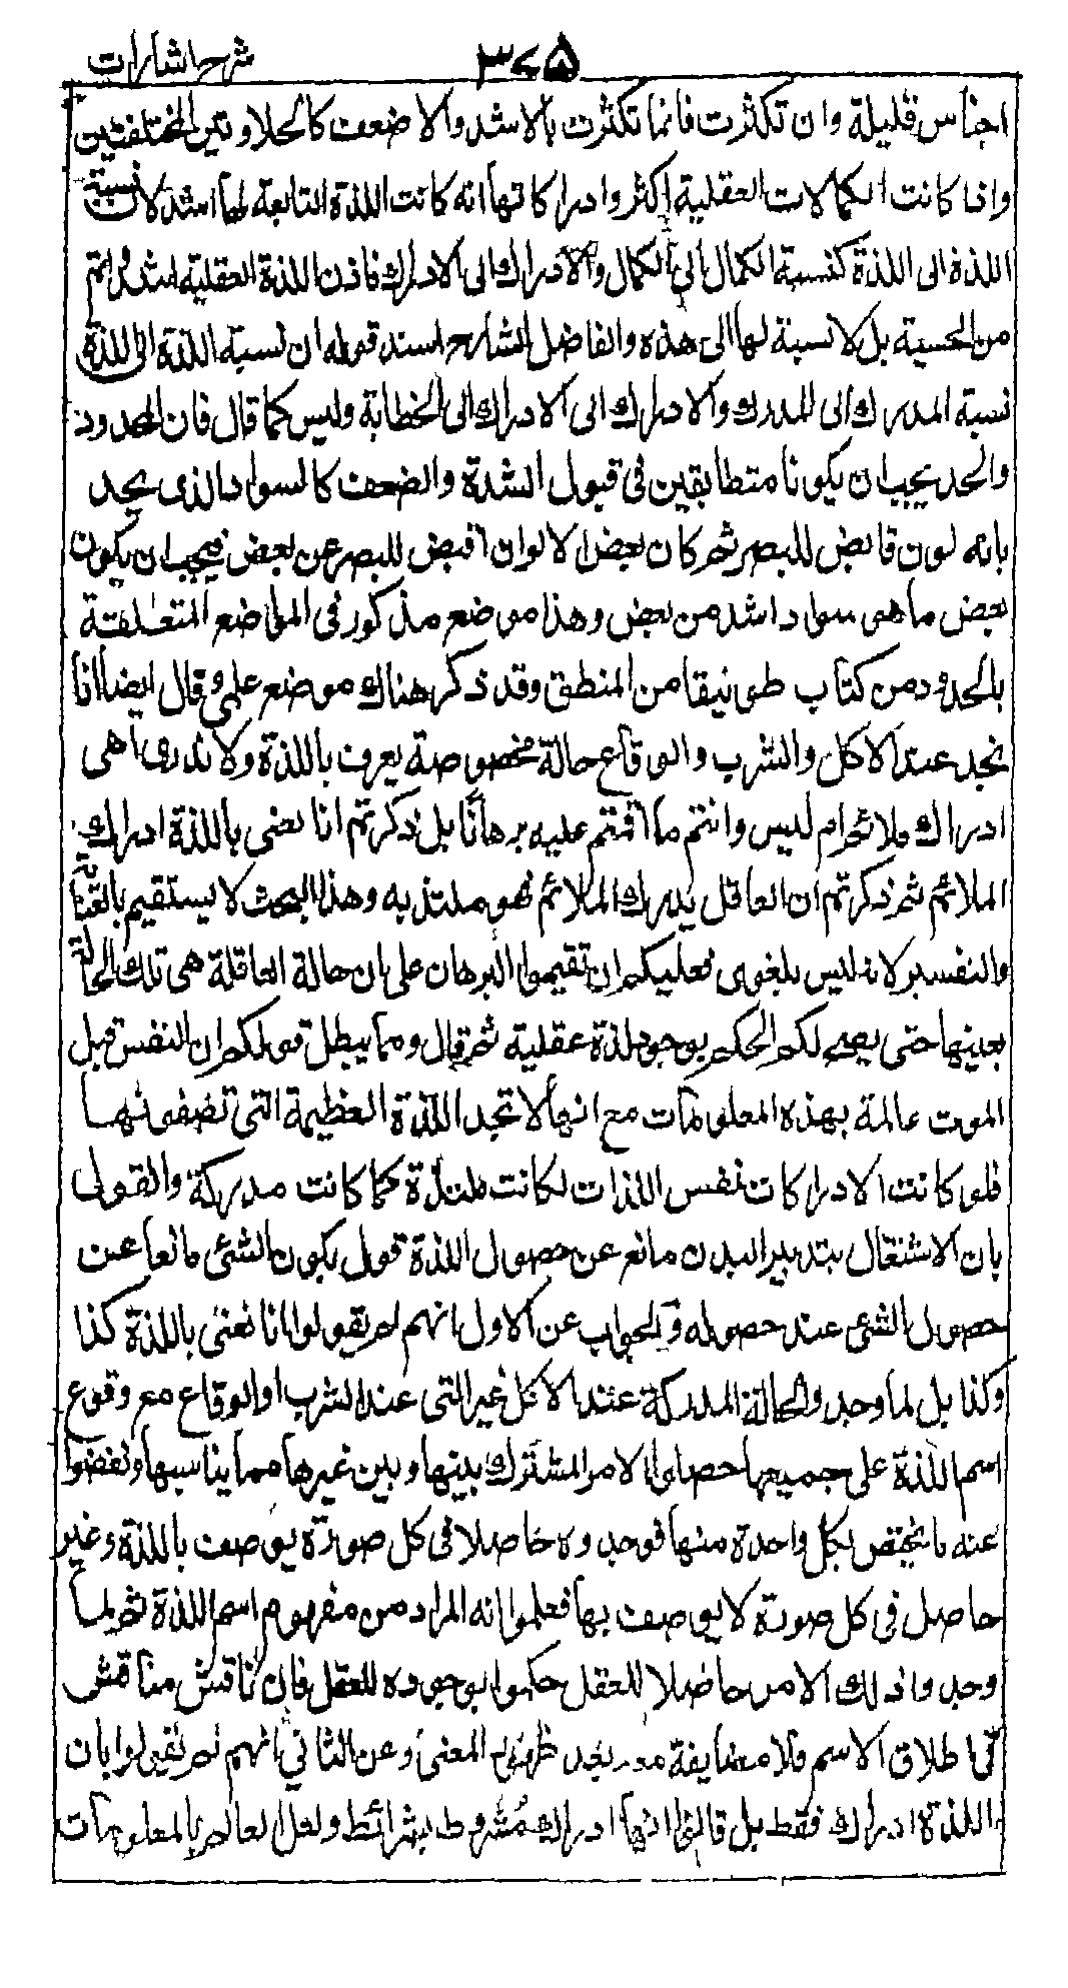 شرح اشارات
٣٧٥
اجناس قليلة وان تكثرت فانما تكثرت بالاشد والاضعف كالحلاوتين المختلفتين
واذا كانت الكمالات العقلية اكثر وادراكاتها اتم كانت اللذة التابعة لها اشد لان نسبة
اللذة الى اللذة كنسبة الكمال الى الكمال والادراك الى الادراك فاذن اللذة العقلية اشد واتم
من الحسية بل لا نسبة لها الى هذه والفاضل الشارح اسند قوله ان نسبة اللذة الى اللذة
نسبة المدرك الى المدرك والادراك الى الادراك الى الخطابة وليس كما قال فان المحدود
والحد يجب ان يكونا متطابقين فى قبول الشدة والضعف كالسواد الذى يحد
بانه لون قابض للبصر ثم كان بعض الالوان اقبض للبصر عن بعض فيجب ان يكون
بعض ما هو سواد اشد من بعض وهذا موضع مذكور فى المواضع المتعلقة
بالحدود من كتاب طونيقا من المنطق وقد ذكر هناك موضع علمى وقال ايضا انا
نجد عند الاكل والشرب والوقاع حالة مخصوصة يعرف باللذة ولا ندرى أهى
ادراك ملائم ام ليس وانتم ما اقمتم عليه برهانا بل ذكرتم انا نعنى باللذة ادراك
الملائم ثم ذكرتم ان العاقل يدرك الملائم فهو ملتذ به وهذا البحث لا يستقيم بالعناية
والتفسير لانه ليس بلغوى فعليكم ان تقيموا البرهان على ان حالة العاقلة هى تلك الحالة
بعينها حتى يصح لكم الحكم بوجود لذة عقلية ثم قال ومما يبطل قولكم ان النفس قبل
الموت عالمة بهذه المعلومات مع انها لا تجد اللذة العظيمة التى تصفونها
فلو كانت الادراكات نفس اللذات لكانت ملتذة كما كانت مدركة والقول
بان الاشتغال بتدبير البدن مانع عن حصول اللذة قول بكون الشئ مانعا عن
حصول الشئ عند حصوله والجواب عن الاول انهم لم يقولوا انا نعنى باللذة كذا
وكذا بل لما وجدوا الحالة المدركة عند الاكل غير التى عند الشرب او الوقاع مع وقوع
اسم اللذة على جميعها حصلوا الامر المشترك بينها وبين غيرها مما يناسبها ونفضوا
عنه ما يختص بكل واحدة منها فوجدوه حاصلا فى كل صورة يوصف باللذة وغير
حاصل فى كل صورة لا يوصف بها فعلموا انه المراد من مفهوم اسم اللذة ثم لما
وجدوا ذلك الامر حاصلا للعقل حكموا بوجوده للعقل فان ناقش مناقش
فى اطلاق الاسم فلا مضايقة معه بعد ظهور المعنى وعن الثانى انهم لم يقولوا بان
اللذة ادراك فقط بل قالوا انها ادراك مشروط بشرائط ولعل العالم بالمعلومات